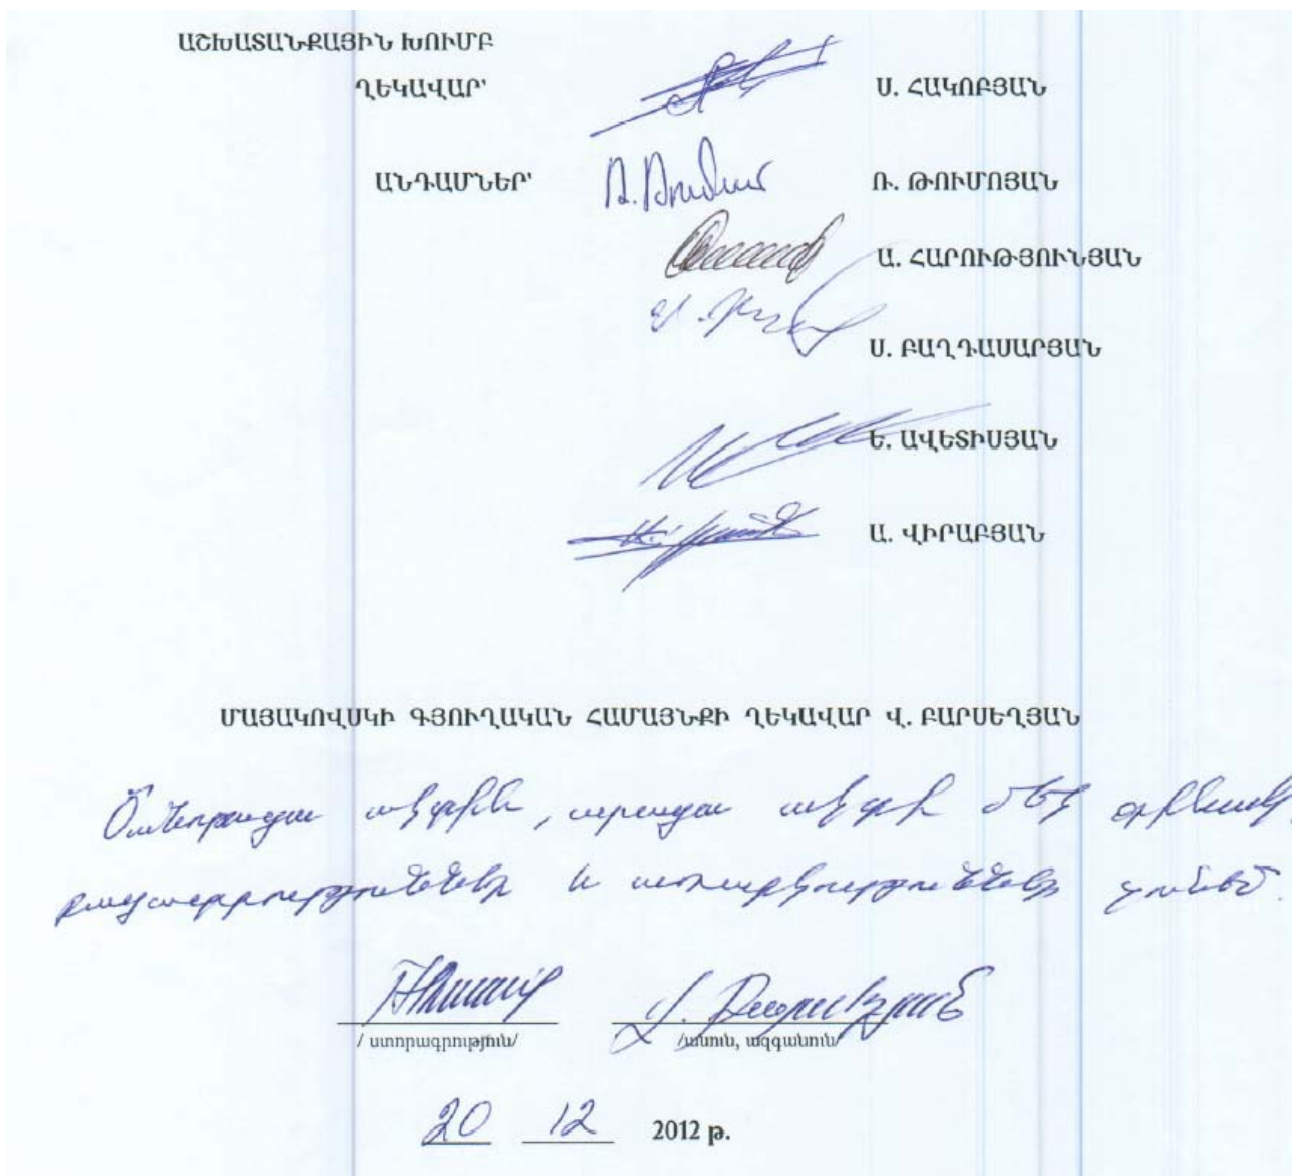 ԱՇԽԱՏԱՆՔԱՅԻՆ ԽՈՒՄԲ
ՂԵԿԱՎԱՐ՝ Ս. ՀԱԿՈԲՅԱՆ
ԱՆԴԱՄՆԵՐ՝ Ռ. ԹՈՒՄՈՅԱՆ
Ա. ՀԱՐՈՒԹՅՈՒՆՅԱՆ
Ս. ԲԱՂԴԱՍԱՐՅԱՆ
Ե. ԱՎԵՏԻՍՅԱՆ
Ա. ՎԻՐԱԲՅԱՆ
ՄԱՅԱԿՈՎՍԿԻ ԳՅՈՒՂԱԿԱՆ ՀԱՄԱՅՆՔԻ ՂԵԿԱՎԱՐ Վ. ԲԱՐՍԵՂՅԱՆ
Ծանոթացա ակտին, ստացա ակտի մեկ օրինակ,
բացատրություններ և առարկություններ չունեմ.
Վ. Բարսեղյան
/ ստորագրություն/ /անուն, ազգանուն/
20 12 2012 թ.